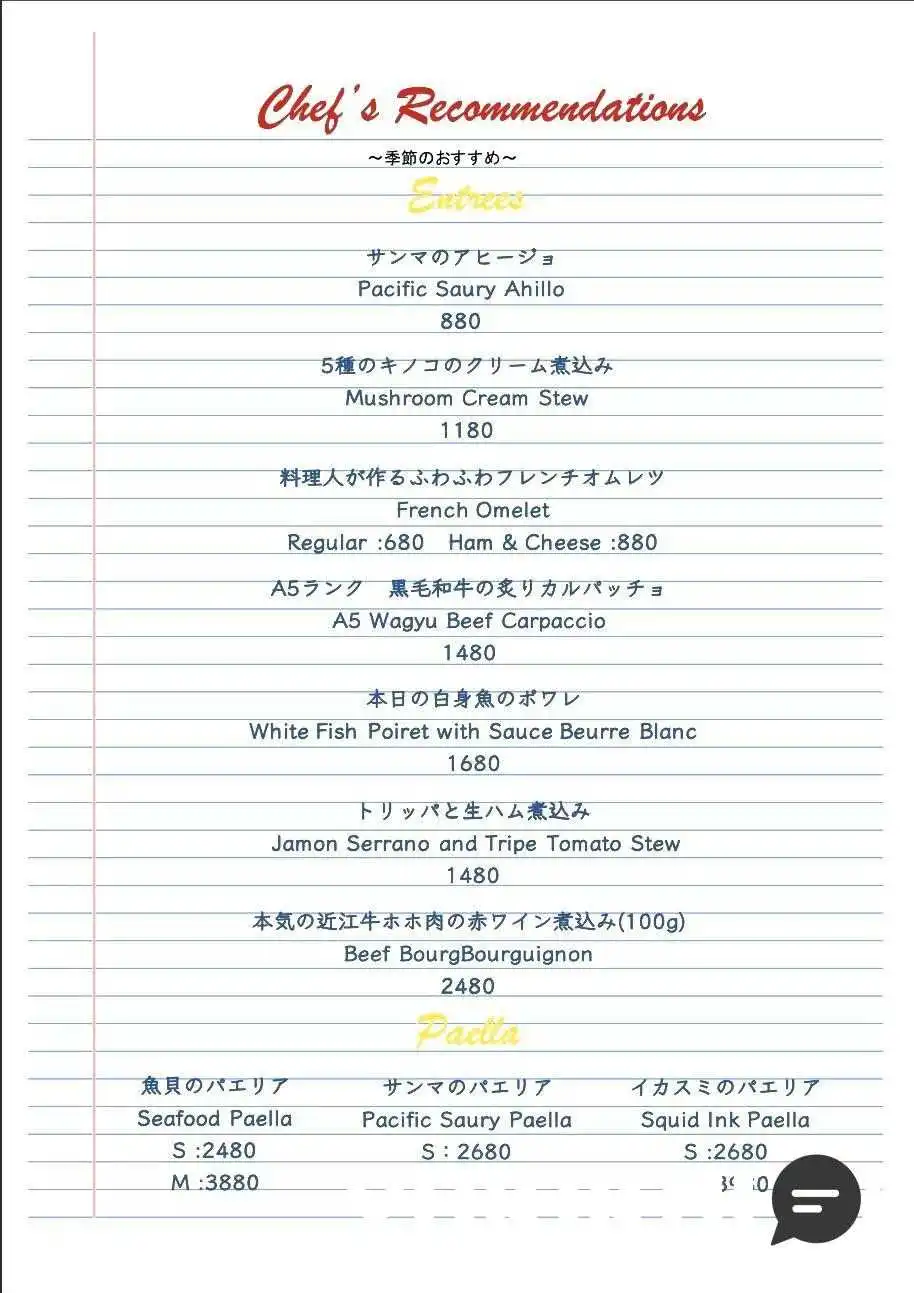 Chef's Recommendations
～季節のおすすめ～
Entrees
サンマのアヒージョ
Pacific Saury Ahillo
880
5種のキノコのクリーム煮込み
Mushroom Cream Stew
1180
料理人が作るふわふわフレンチオムレツ
French Omelet
Regular :680 Ham & Cheese :880
A5ランク　黒毛和牛の炙りカルパッチョ
A5 Wagyu Beef Carpaccio
1480
本日の白身魚のポワレ
White Fish Poiret with Sauce Beurre Blanc
1680
トリッパと生ハム煮込み
Jamon Serrano and Tripe Tomato Stew
1480
本気の近江牛ホホ肉の赤ワイン煮込み(100g)
Beef BourgBourguignon
2480
Paella
魚貝のパエリア
Seafood Paella
S :2480
M :3880
サンマのパエリア
Pacific Saury Paella
S：2680
イカスミのパエリア
Squid Ink Paella
S :2680